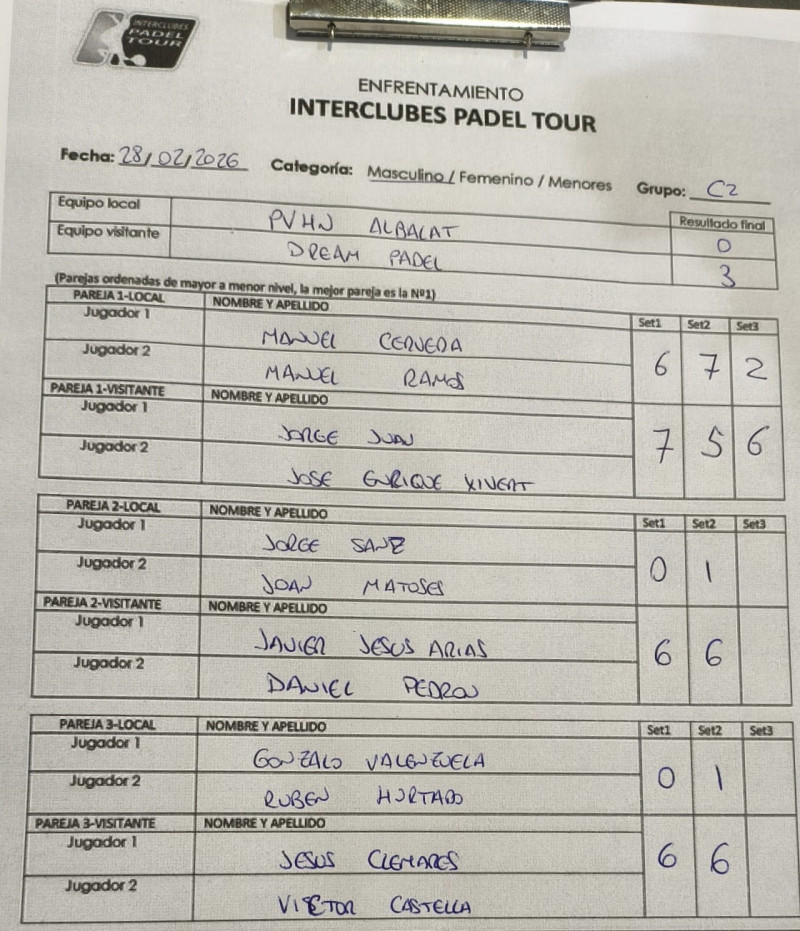 INTERCLUBES
PADEL
TOUR
ENFRENTAMIENTO
INTERCLUBES PADEL TOUR
Fecha: 28/02/2026 Categoría: Masculino / Femenino / Menores Grupo: C2
Equipo local PVHN ALBALAT Resultado final
0
Equipo visitante DREAM PADEL 3
(Parejas ordenadas de mayor a menor nivel, la mejor pareja es la Nº1)
PAREJA 1-LOCAL NOMBRE Y APELLIDO Set1 Set2 Set3
Jugador 1 MANUEL CERVERA
Jugador 2 MANUEL RAMOS 6 7 2
PAREJA 1-VISITANTE NOMBRE Y APELLIDO
Jugador 1 JORGE JUAN
Jugador 2 JOSE ENRIQUE XIVERT 7 5 6
PAREJA 2-LOCAL NOMBRE Y APELLIDO Set1 Set2 Set3
Jugador 1 JORGE SANZ
Jugador 2 JOAN MATOSES 0 1
PAREJA 2-VISITANTE NOMBRE Y APELLIDO
Jugador 1 JAVIER JESUS ARIAS
Jugador 2 DANIEL PEDRON 6 6
PAREJA 3-LOCAL NOMBRE Y APELLIDO Set1 Set2 Set3
Jugador 1 GONZALO VALENZUELA
Jugador 2 RUBEN HURTADO 0 1
PAREJA 3-VISITANTE NOMBRE Y APELLIDO
Jugador 1 JESUS CLEMARES 6 6
Jugador 2 VICTOR CASTELLA